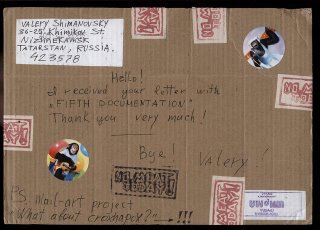 VALERY SHIMANOVSKY
36-25, Khimikov St.
NIZHNEKAMSK
TATARSTAN, RUSSIA.
423578
Hello!
I received your letter with
"FIFTH DOCUMENTATION"
Thank you very much!
Bye!
Valery!
P.S. Mail-art project
"What about croxhapox?" → !!!